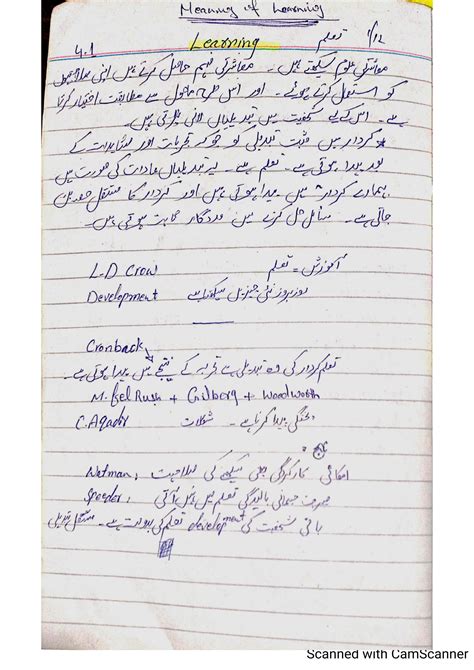 Meaning of Learning
4.1 Learning تعلم 1/12
معاشرتی علوم سیکھتے ہیں۔ معاشرتی فہم حاصل کرتے ہیں اپنی
کو استعمال کرتے ہوئے۔ اور اس طرح ماحول سے مطابقت اختیار کرتا
ہے۔ اس کے لیے شخصیت میں تبدیلیاں لانی پڑتی ہیں۔
کردار میں مثبت تبدیلی کو جو کہ تجربات اور مشاہدات کے
بعد پیدا ہوتی ہے۔ تعلم ہے۔ یہ تبدیلیاں عادات کی صورت میں
ہمارے کردار میں پیدا ہوتی ہیں اور کردار کا مستقل حصہ بن
جاتی ہے۔ مسائل حل کرنے میں مددگار ثابت ہوتی ہیں۔
L.D Crow آموزش = تعلم
Development روز بروز نئی چیزیں سیکھنا ہے
Cronback
تعلم کردار کی وہ تبدیلی ہے تجربہ کے نتیجے میں پیدا ہوتی ہے۔
+ Gilberg + Woodworth
پختگی پیدا کرنا ہے۔
امکانی کارکردگی یعنی سیکھنے کی صلاحیت
صرف جسمانی بالیدگی تعلم میں نہیں آتی
باقی شخصیت کی development تعلم کی بدولت ہے۔ مستقل تبدیلی
Scanned with CamScanner